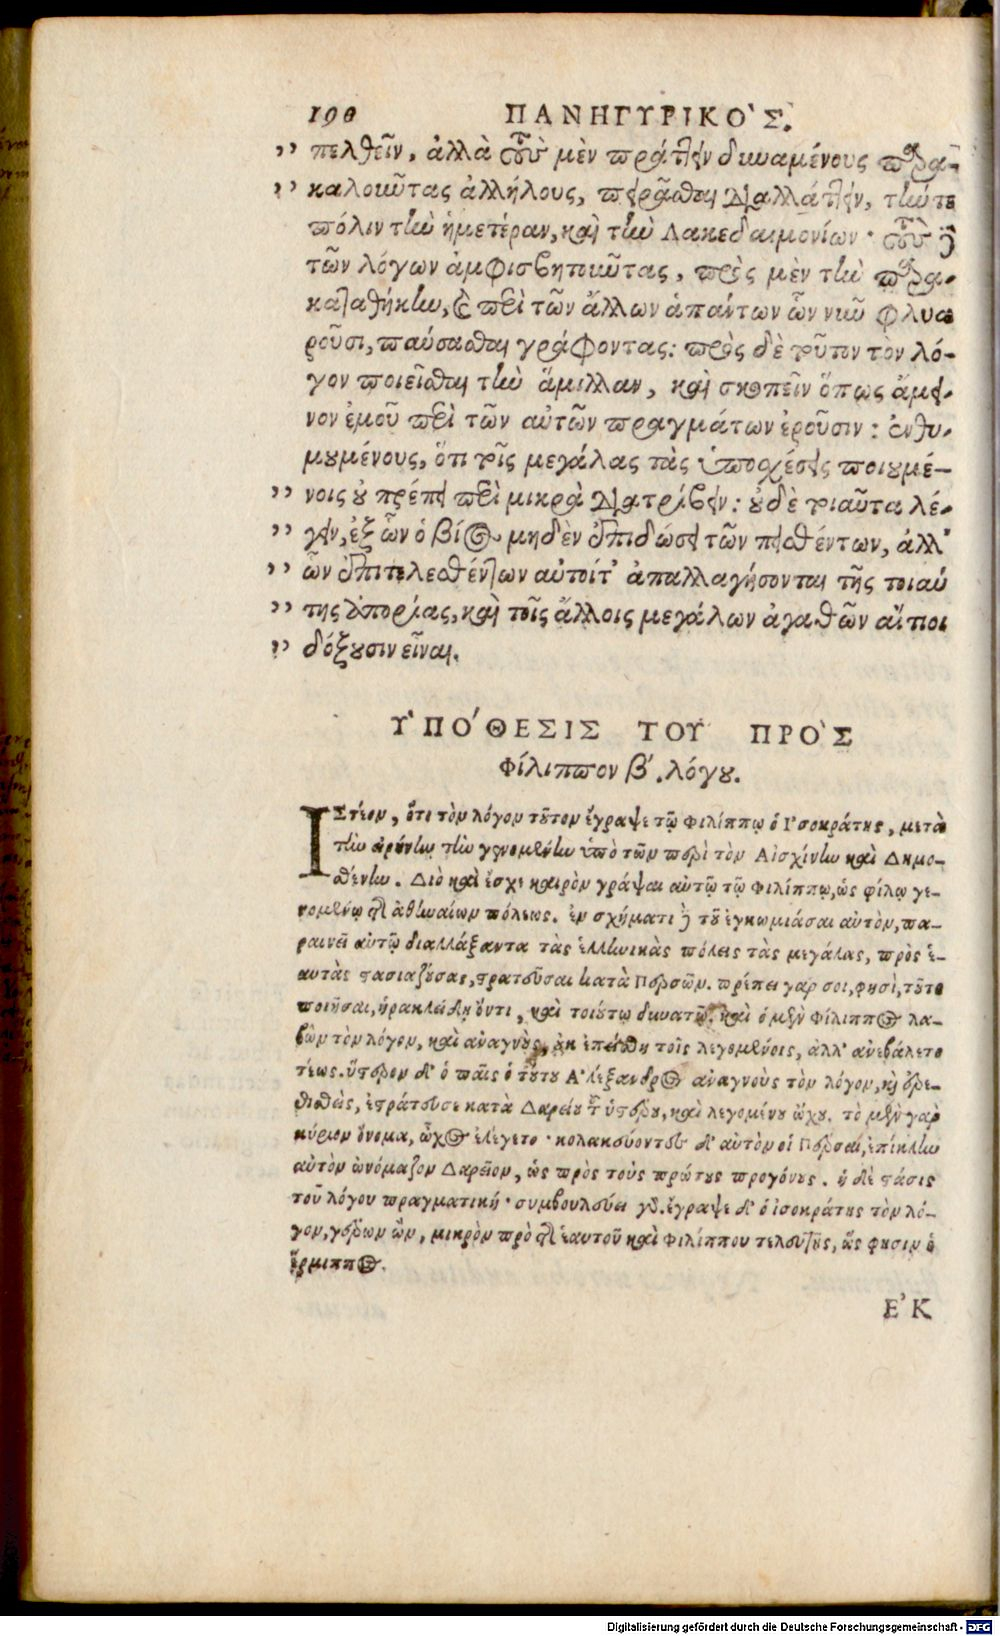 190 ΠΑΝΗΓΥΡΙΚΟ`Σ.
„ πελθεῖν, ἀλλὰ τοὺς μὲν πράττειν δυναμένους παρα-
„ καλοῦντας ἀλλήλους, πειρᾶσθαι διαλλάττειν, τήν τε
πόλιν τὴν ἡμετέραν, καὶ τὴν Λακεδαιμονίων· τοὺς δὲ
τῶν λόγων ἀμφισβητοῦντας, πρὸς μὲν τὴν παρα-
καταθήκην, καὶ περὶ τῶν ἄλλων ἁπάντων ὧν νῦν φλυα
ροῦσι, παύσασθαι γράφοντας: πρὸς δὲ τοῦτον τὸν λό-
γον ποιεῖσθαι τὴν ἅμιλλαν, καὶ σκοπεῖν ὅπως ἄμει-
νον ἐμοῦ περὶ τῶν αὐτῶν πραγμάτων ἐροῦσιν: ἐνθυ-
μουμένους, ὅτι τοῖς μεγάλας τὰς ὑποσχέσεις ποιουμέ-
„ νοις οὐ πρέπει περὶ μικρὰ διατρίβειν: οὐδὲ τοιαῦτα λέ-
„ γειν, ἐξ ὧν ὁ βίος μηδὲν ἐπιδώσει τῶν πεισθέντων, ἀλλ'
„ ὧν ἐπιτελεσθέντων αὐτοίτ' ἀπαλλαγήσονται τῆς τοιαύ
„ της ἀπορίας, καὶ τοῖς ἄλλοις μεγάλων ἀγαθῶν αἴτιοι
„ δόξουσιν εἶναι.
Υ῾ΠΟ´ΘΕΣΙΣ ΤΟΥ ΠΡΟ`Σ
Φίλιππον β'. λόγου.
ΙΣτέον, ὅτι τὸν λόγον τοῦτον ἔγραψε τῷ Φιλίππῳ ὁ Ἰσοκράτης, μετὰ
τὴν εἰρήνην τὴν γενομένην ὑπὸ τῶν περὶ τὸν Αἰσχίνην καὶ Δημο-
σθένην. Διὸ καὶ ἔσχε καιρὸν γράψαι αὐτῷ τῷ Φιλίππῳ, ὡς φίλῳ γε-
νομένῳ τῆς ἀθηναίων πόλεως. ἐν σχήματι δὲ τοῦ ἐγκωμιάσαι αὐτὸν, πα-
ραινεῖ αὐτῷ διαλλάξαντα τὰς ἑλληνικὰς πόλεις τὰς μεγάλας, πρὸς ἑ-
αυτὰς στασιαζούσας, στρατεῦσαι κατὰ Περσῶν. πρέπει γαρ σοι, φησὶ, τοῦτο
ποιῆσαι, ἡρακλείδῃ ὄντι, καὶ τοιούτῳ δυνατῷ. καὶ ὁ μὲν Φίλιππος λα-
βὼν τὸν λόγον, καὶ ἀναγνοὺς, οὐκ ἐπείσθη τοῖς λεγομένοις, ἀλλ' ἀνεβάλετο
τέως. ὕστερον δ' ὁ παῖς ὁ τούτου Ἀλέξανδρος ἀναγνοὺς τὸν λόγον, καὶ ἐρε-
θισθεὶς, ἐστράτευσε κατὰ Δαρείου τοῦ ὑστέρου, καὶ λεγομένου ὤχου. τὸ μὲν γὰρ
κύριον ὄνομα, ὦχος ἐλέγετο· κολακεύοντες δ' αὐτὸν οἱ Πέρσαι, ἐπίκλην
αὐτὸν ὠνόμαζον Δαρεῖον, ὡς πρὸς τοὺς πρώτους προγόνους. ἡ δὲ στάσις
τοῦ λόγου πραγματική· συμβουλεύει γὰρ. ἔγραψε δ' ὁ ἰσοκράτης τὸν λό-
γον, γέρων ὢν, μικρὸν πρὸ τῆς ἑαυτοῦ καὶ Φιλίππου τελευτῆς, ὥς φησιν ὁ
ἕρμιππος.
Ε᾿Κ
Digitalisierung gefördert durch die Deutsche Forschungsgemeinschaft - DFG